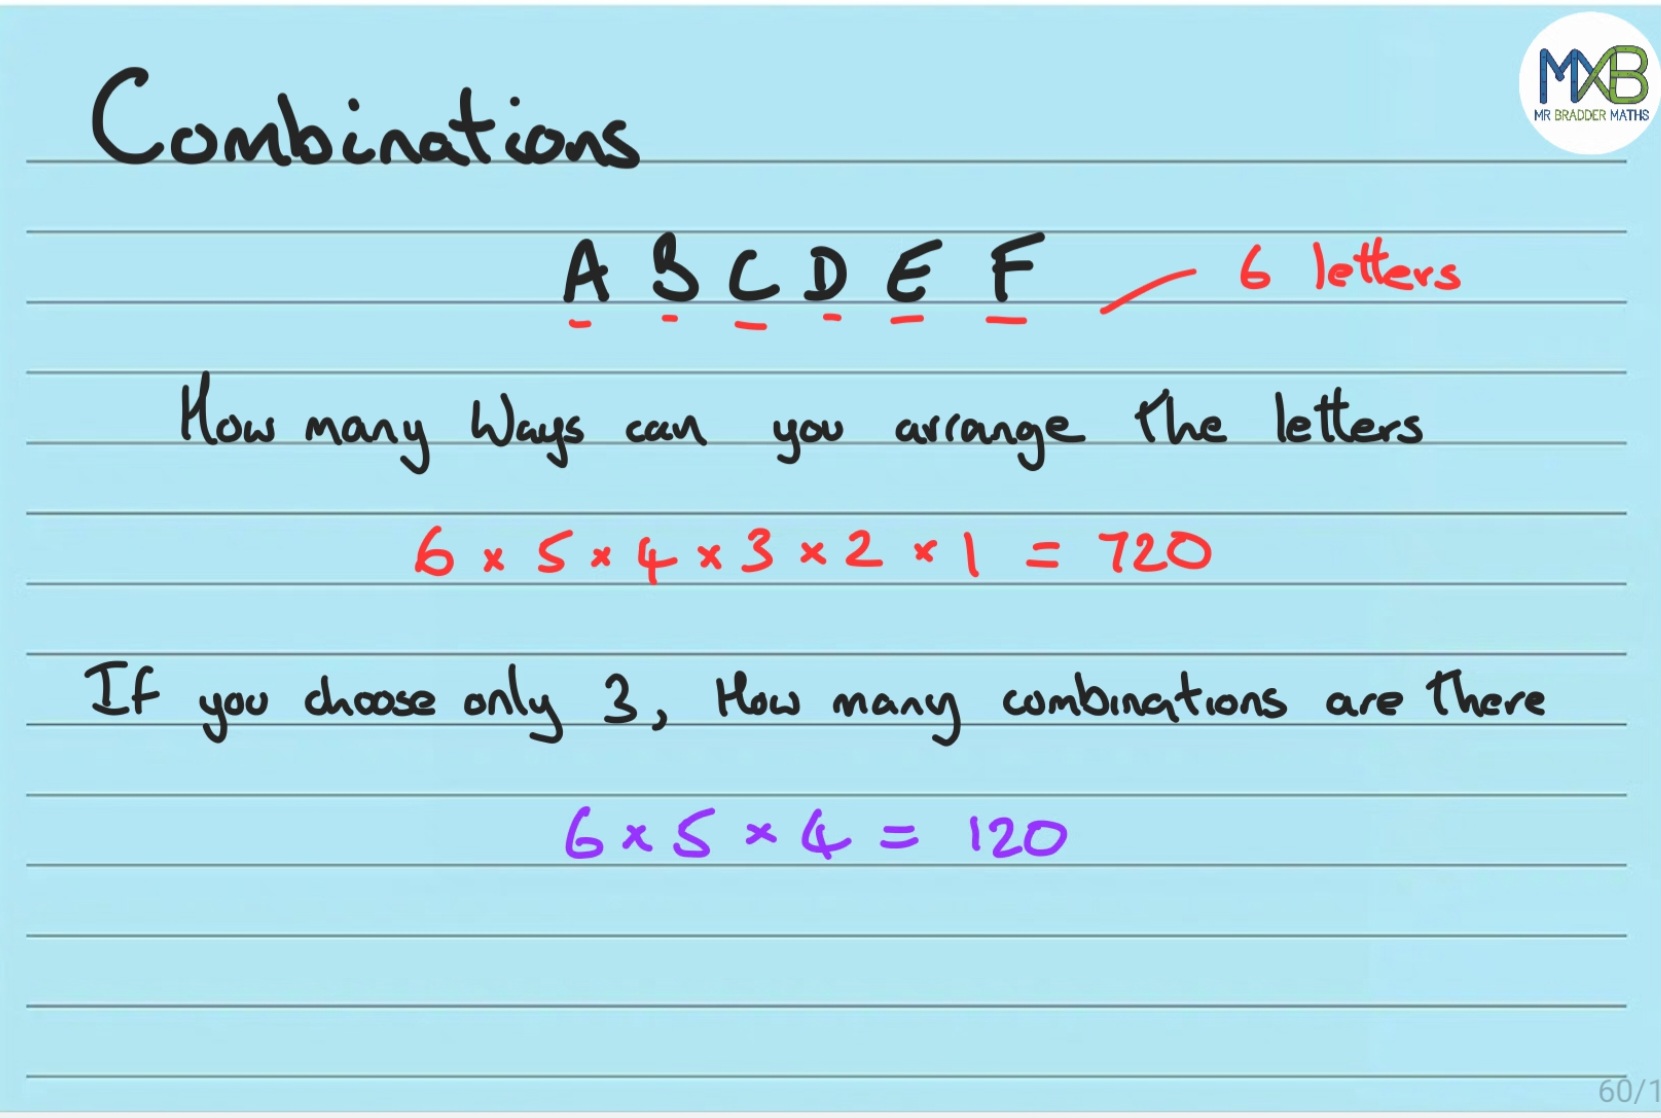 MXB
MR BRADDER MATHS
Combinations
A B C D E F
6 letters
How many Ways can you arrange the letters
6 × 5 × 4 × 3 × 2 × 1 = 720
If you choose only 3, How many combinations are there
6 × 5 × 4 = 120
60/1